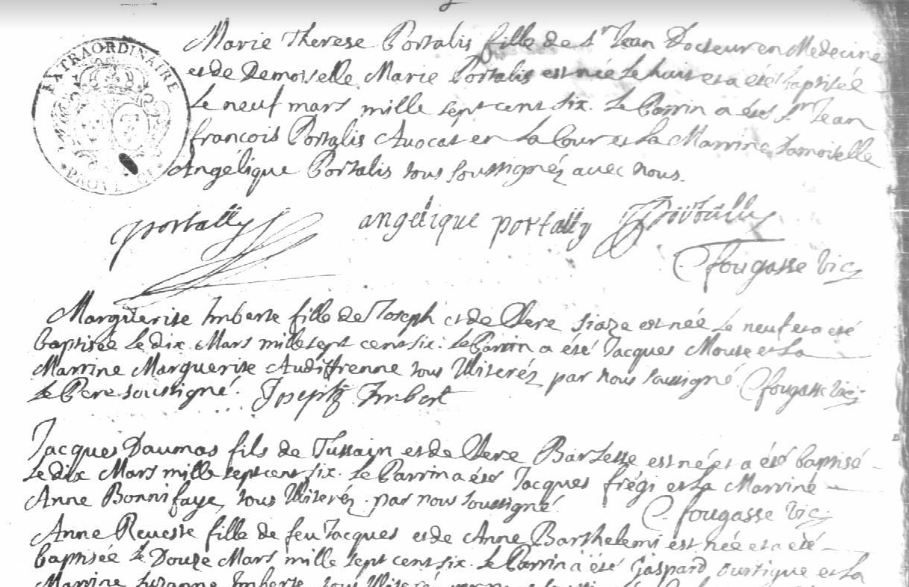 EXTRAORDINAIRE
PROVEN
Marie Therese Portalis fille de Sr Jean Docteur en Medecine
et de Demoiselle Marie Portalis est née le huit et a été baptisée
le neuf mars mille sept cent six. Le Parrin a été Sr Jean
francois Portalis Avocat en la Cour et la Marrine Damoiselle
Angelique Portalis tous soussignéz avec nous.
portally angelique portally portally
fougasse vic
Marguerite Imberte fille de Joseph et de Clere est née le neuf et a été
baptisée le dix Mars mille sept cent six. Le Parrin a été Jacques Moute et la
Marrine Marguerite Audifrenne tous illiteréz par nous soussigné fougasse vic
le Pere soussigné. Joseph Imbert
Jacques Daumas fils de Tussain et de Clere Barlesse est né et a été baptisé
le dix Mars mille sept cent six. Le Parrin a été Jacques frégi et la Marrine
Anne Bonnifaye, tous illiteréz par nous soussigné. fougasse vic
Anne Reveste fille de feu Jacques et de Anne Barthelemi est née et a été
baptisée le Douze Mars mille sept cent six. Le Parrin a été Gaspard et la
Marrine Suzanne Imberte tous illiteré